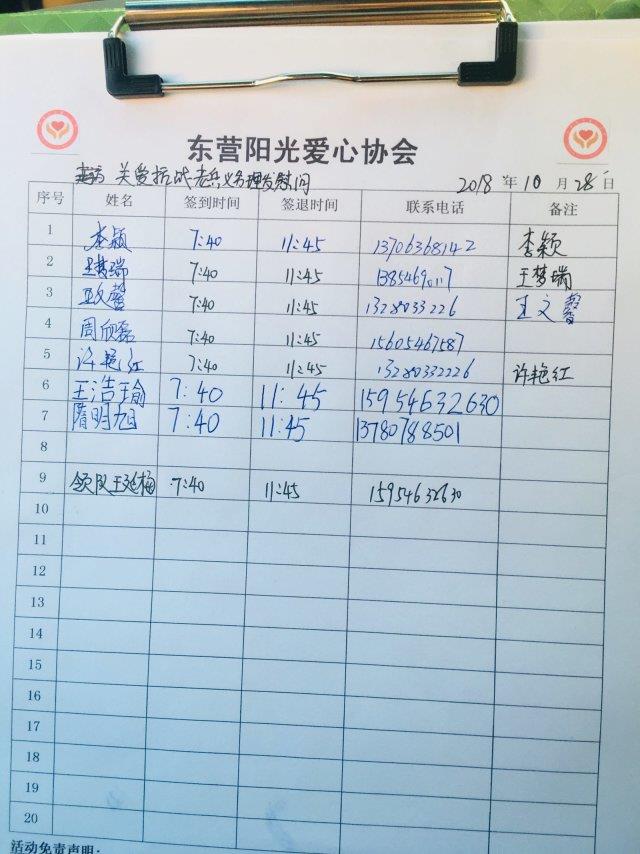 东营阳光爱心协会
走访 关爱抗战老兵义务理发慰问 2018年10月28日
序号 姓名 签到时间 签退时间 联系电话 备注
1 李颖 7:40 11:45 13706368142 李颖
2 王梦瑞 7:40 11:45 王梦瑞
3 王文馨 7:40 11:45 13280033226 王文馨
4 周欣磊 7:40 11:45 15605467587
5 许艳红 7:40 11:45 13280332226 许艳红
6 王浩瑜 7:40 11:45 15954632630
7 隋明旭 7:40 11:45 13780788501
8
9 领队王延梅 7:40 11:45 15954632630
10
11
12
13
14
15
16
17
18
19
20
活动免责声明: